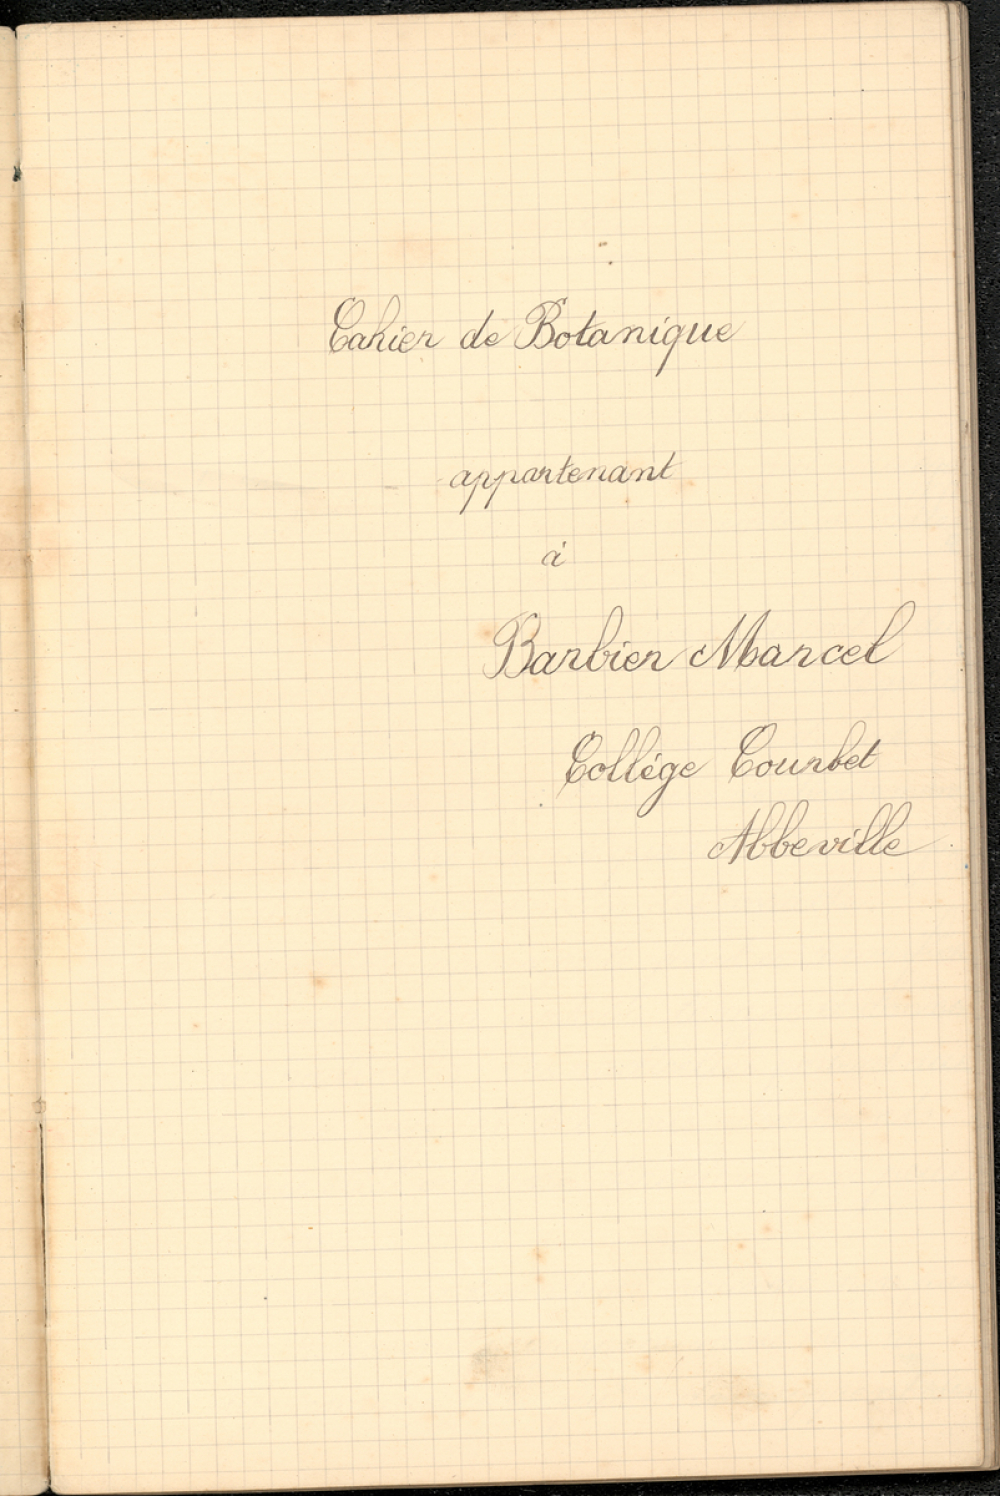 Cahier de Botanique
appartenant
à
Barbier Marcel
Collége Courbet
Abbeville